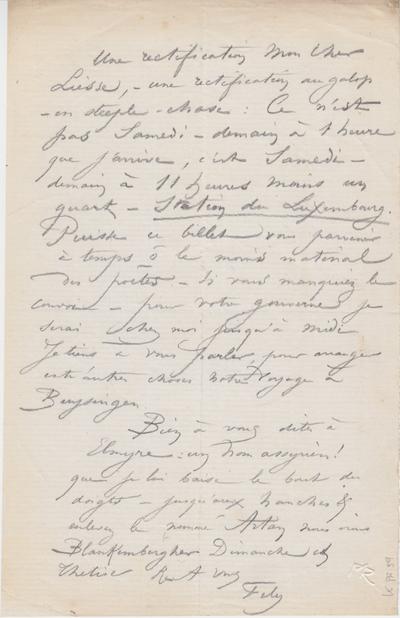 Une rectification Mon Cher
Liesse, - une rectification au galop
- en steeple-chase : Ce n'est
pas Samedi - demain à 1 heure
que j'arrive, c'est Samedi -
demain à 11 heures moins un
quart - Station du Luxembourg.
Puisse ce billet vous parvenir
à temps ô le moins matériel
des poètes - Si vous manquiez le
convoi - pour votre gouverne je
serai chez moi jusqu'à midi
Je tiens à vous parler, pour arranger
entr'autres choses notre Voyage à
Buysingen
Bien à vous dites à
Elmyre : un nom assyrien !
que je lui baise le bout des
doigts - jusqu'aux hanches &
le nommé Artan nous irons
Blankemberghe Dimanche
à vous
Fely